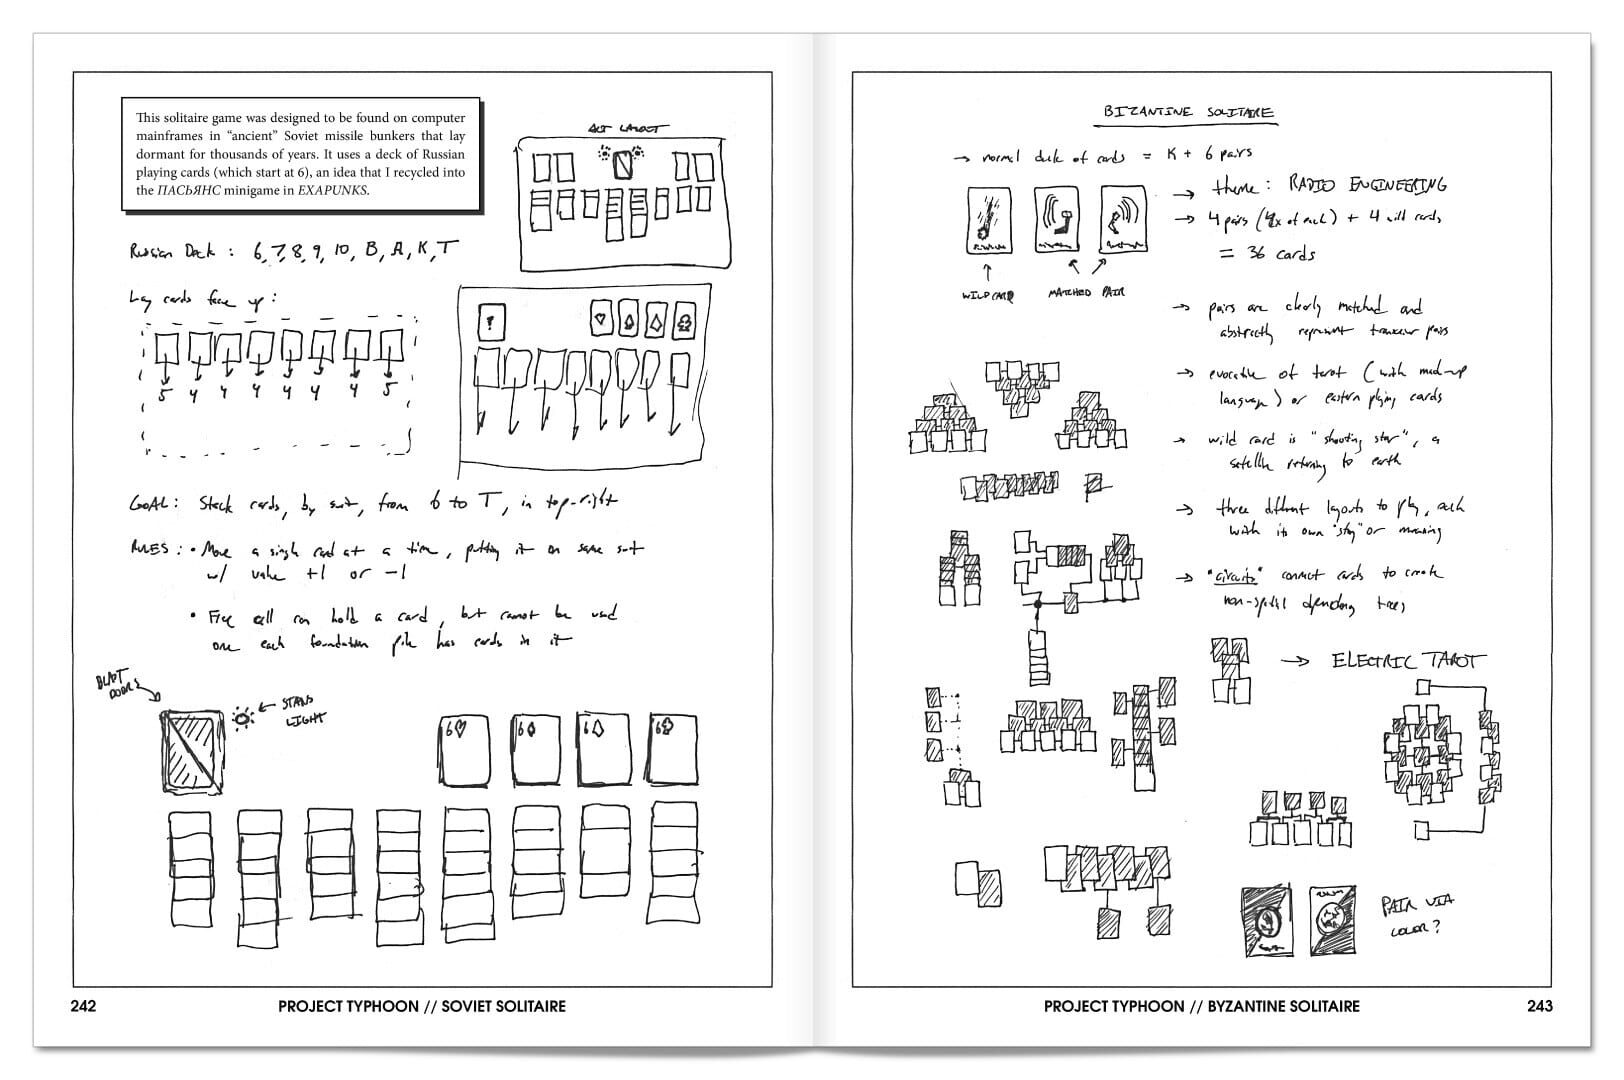 This solitaire game was designed to be found on computer
mainframes in “ancient” Soviet missile bunkers that lay
dormant for thousands of years. It uses a deck of Russian
playing cards (which start at 6), an idea that I recycled into
the ПАСЬЯНС minigame in EXAPUNKS.
ALT LAYOUT
Russian Deck : 6, 7, 8, 9, 10, B, A, K, T
Lay cards face up :
5 4 4 4 4 4 4 5
?
GOAL: Stack cards, by suit, from 6 to T, in top-right
RULES : • Move a single card at a time, putting it on same suit
w/ value +1 or -1
• Free cell can hold a card, but cannot be used
one each foundation pile has cards in it
BLAST
DOORS
STATUS
LIGHT
6♡ 6♠ 6♢ 6♣
242
PROJECT TYPHOON // SOVIET SOLITAIRE
BIZANTINE SOLITAIRE
→ normal deck of cards = K + 6 pairs
→ theme : RADIO ENGINEERING
→ 4 pairs (4x of each) + 4 wild cards
= 36 cards
WILD CARD
MATCHED PAIR
→ pairs are clearly matched and
abstractly represent pairs
→ evocative of tarot (with made-up
language) or eastern playing cards
→ wild card is "shooting star", a
satellite returning to earth
→ three different layouts to play, each
with its own "story" or meaning
→ "circuits" connect cards to create
non-spatial depending trees
→ ELECTRIC TAROT
PAIR VIA
COLOR?
PROJECT TYPHOON // BYZANTINE SOLITAIRE
243